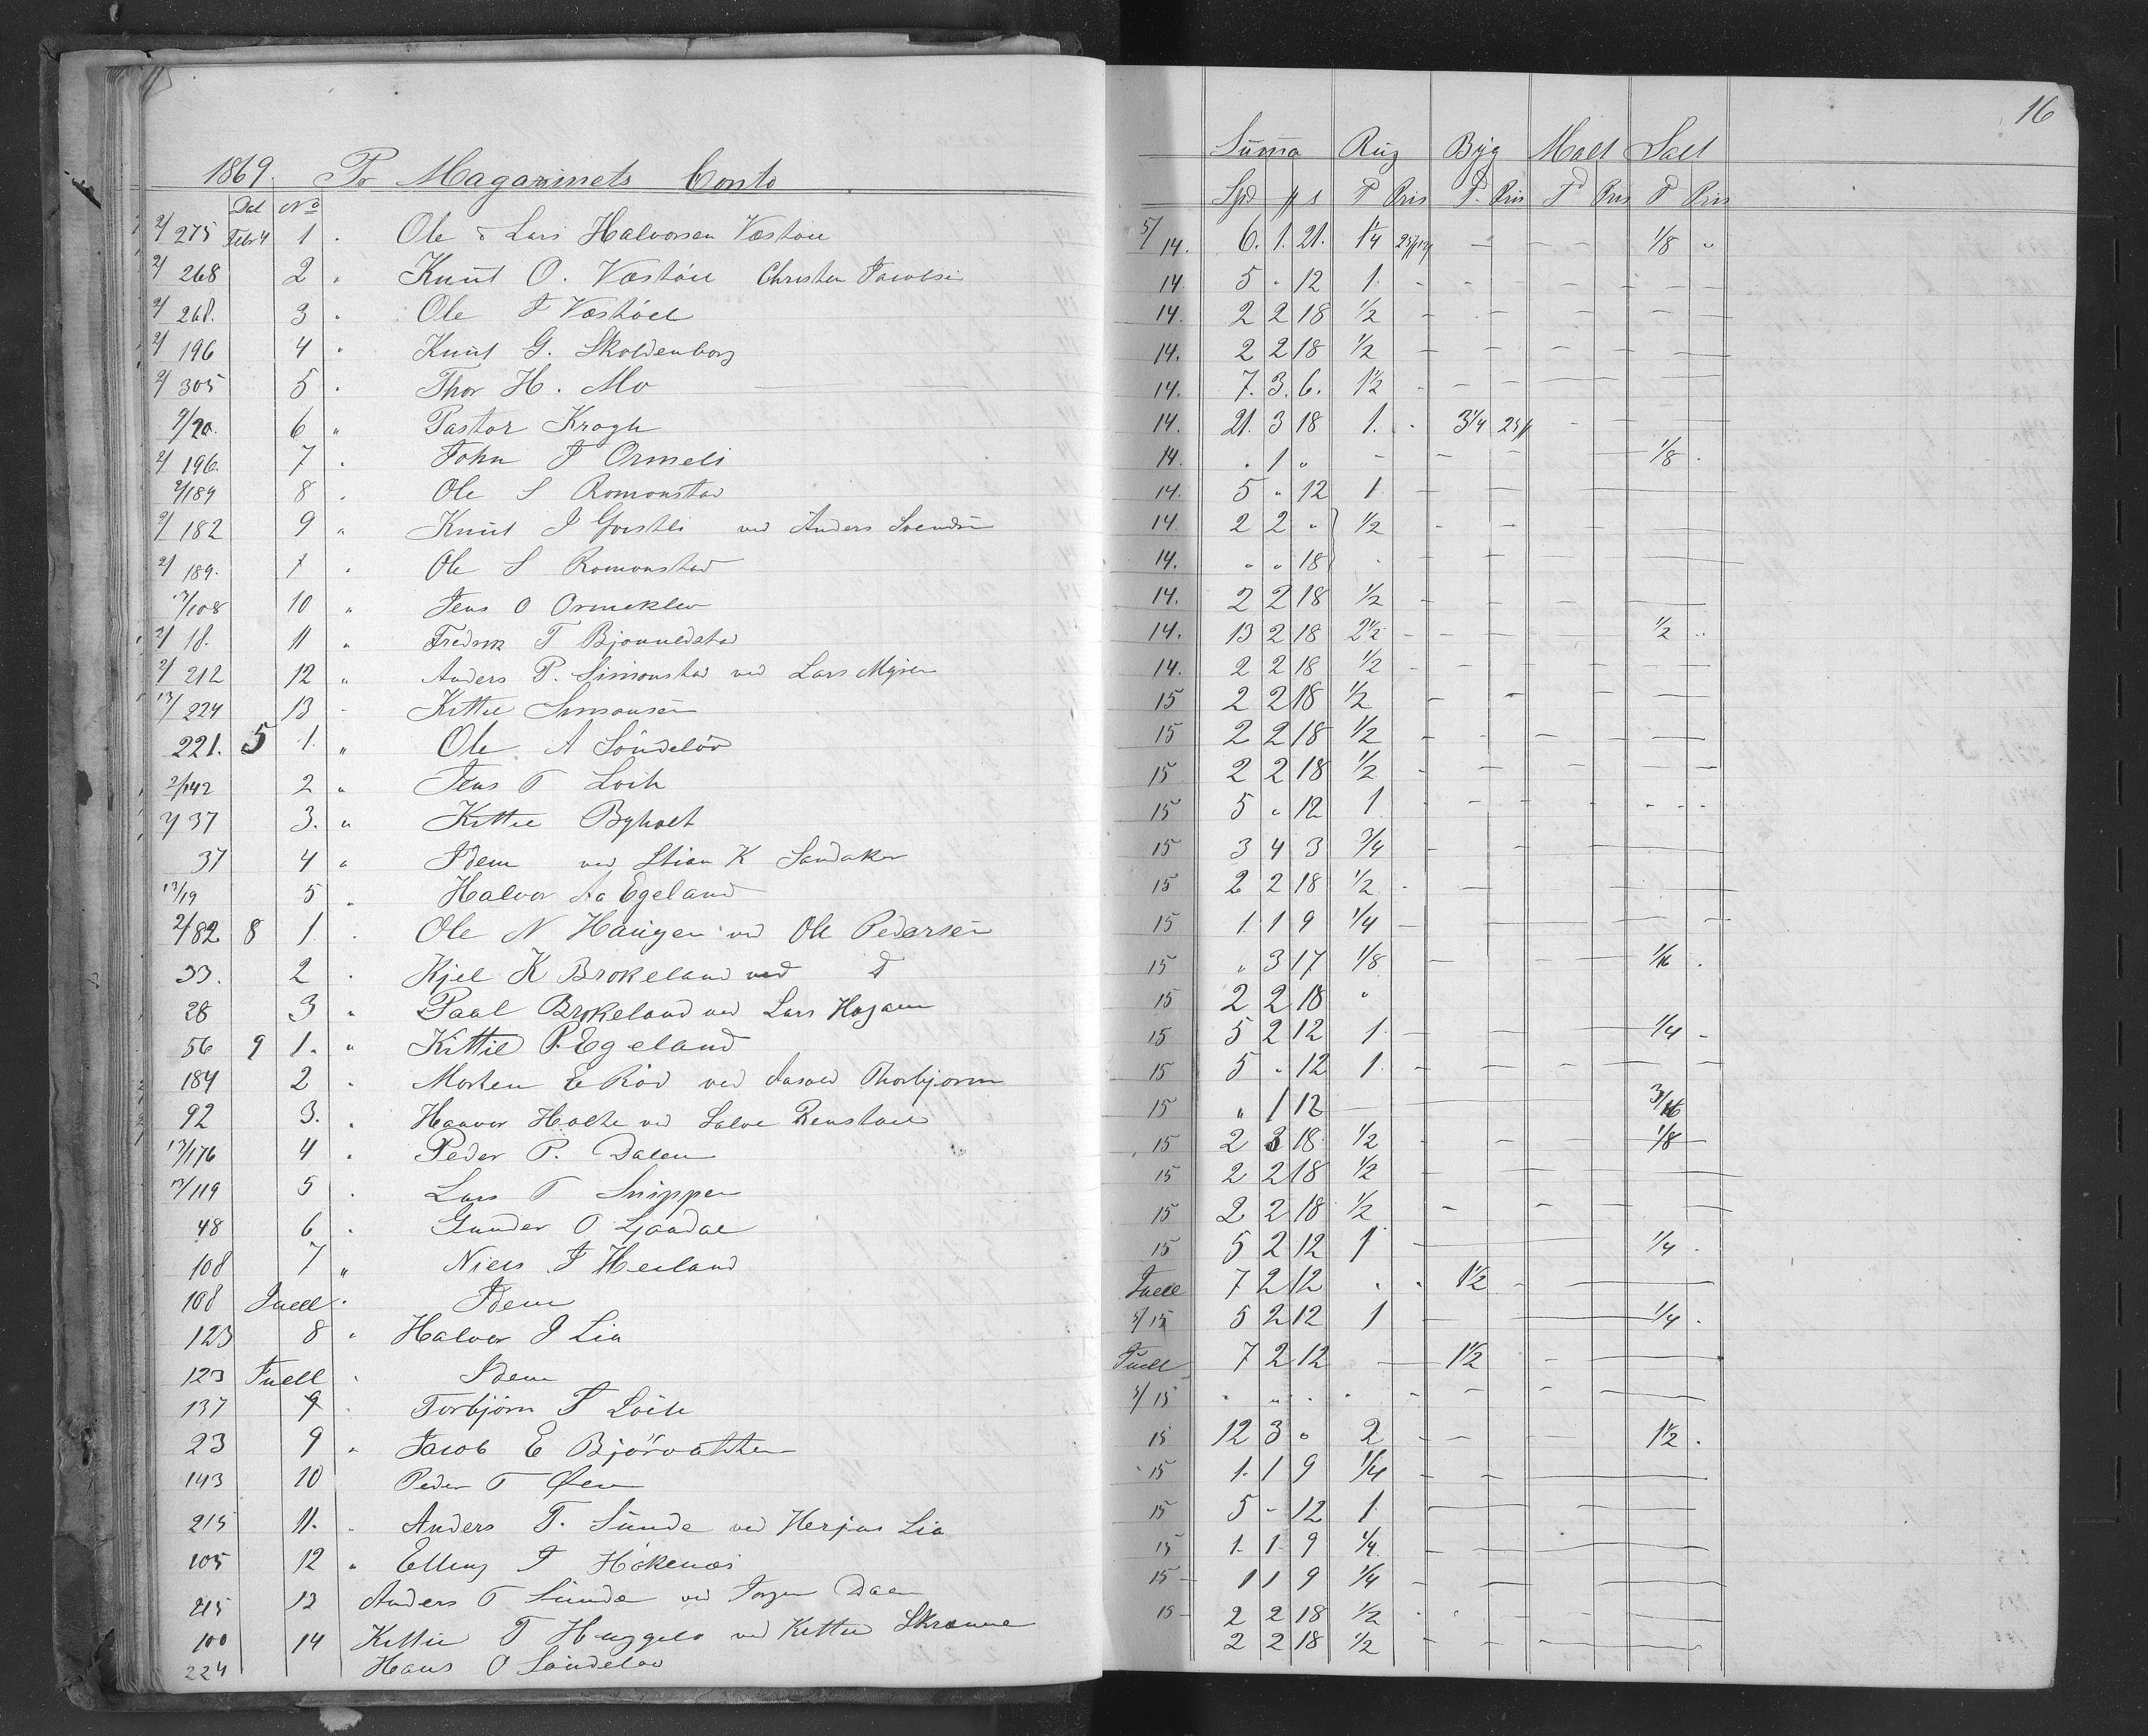 16
1869. Pr Magazinets Conto
Suma Rug Byg Malt Salt
Dat No Spd # s T Pris T. Pris T Pris T Pris
2/275 Febr 4 1 . Ole & Lars Halvorsen Væstøll 5/14. 6. 1. 21. 1 1/4 - - - 1/8 "
2/268 2 " Knut O. Væstøll Christen Jacobsen 14 5 " 12 1.
2/268. 3 " Ole T Væstøll 14. 2 2 18 1/2
2/196 4 " Knut G. Skoldenborg 14. 2 2 18 1/2
2/305 5 . Thor H. Mo 14. 7. 3. 6. 1 1/2
2/20. 6 " Pastor Krogh 14. 21. 3 18 1. 3 1/4
2/196. 7 . John T Ormeli 14. . 1 " - 1/8 .
2/189 8 . Ole S Romonstad 14. 5 " 12 1
2/182 9 " Knut J ved Anders Svendsen 14. 2 2 " 1/2
2/189. . Ole S Romonstad 14. " " 18
13/108 10 " Jens O Ormeklev 14. 2 2 18 1/2
2/18. 11 " Fredrik T 14. 13 2 18 2 1/2 1/2 ..
2/212 12 " Anders P. Simonstad ved Lars Myren 14. 2 2 18 1/2
13/224 13 - Kittil Simonsen 15 2 2 18 1/2
221. 5 1. " Ole A Søndeløv 15 2 2 18 1/2
2/142 2 " Jens T Loch 15 2 2 18 1/2
2/37 3. " Kittil Byholt 15 5 " 12 1
37 4 " Idem ved Stian K Sandaker 15 3 4 3 3/4
13/19 5 " Halvor Aa Egeland 15 2 2 18 1/2
2/82 8 1 . Ole N Haugen ved Ole Pedersen 15 1 1 9 1/4
33. 2 . Kjel K Brokeland ved 15 " 3 17 1/8 1/16 .
28 3 " Paal Brokeland ved Lars 15 2 2 18 "
56 9 1. " Kittil P. Egeland 15 5 2 12 1 1/4
184 2 . Morten E Röd ved Thorbjørn 15 5 " 12 1
92 3. . Haavor Holte ved Salve 15 " 1 12 3/16
13/176 4 . Peder P. Dalen 15 2 3 18 1/2 1/8
13/119 5 . Lars T Snippen 15 2 2 18 1/2
48 6 . Gunder O 15 2 2 18 1/2
108 7 " Niels J Heiland 15 5 2 12 1 1/4 .
108 Juell . Idem Juell 7 2 12 . . 1 1/2
123 8 " Halvor J Lia 5/15 5 2 12 1 1/4 .
123 Juell . Idem Juell 7 2 12 1 1/2
137 9 . Torbjørn T Loch 5/15 . " .
23 9 " Jacob E Bjørvatten 15 12 3 " 2 1 1/2 .
143 10 Peder T Øen 15 1. 1 9 1/4
215 11. . Anders T. Sunde ved Herjus Lia 15 5 - 12 1
105 12 " Elling T Høkenæs 15 1. 1. 9 1/4
215 13 Anders T Sunde ved 15 1 1 9 1/4
100 14 Kittil T ved Kittil 15 2 2 18 1/2
224 Hans O Søndeløv 2 2 18 1/2